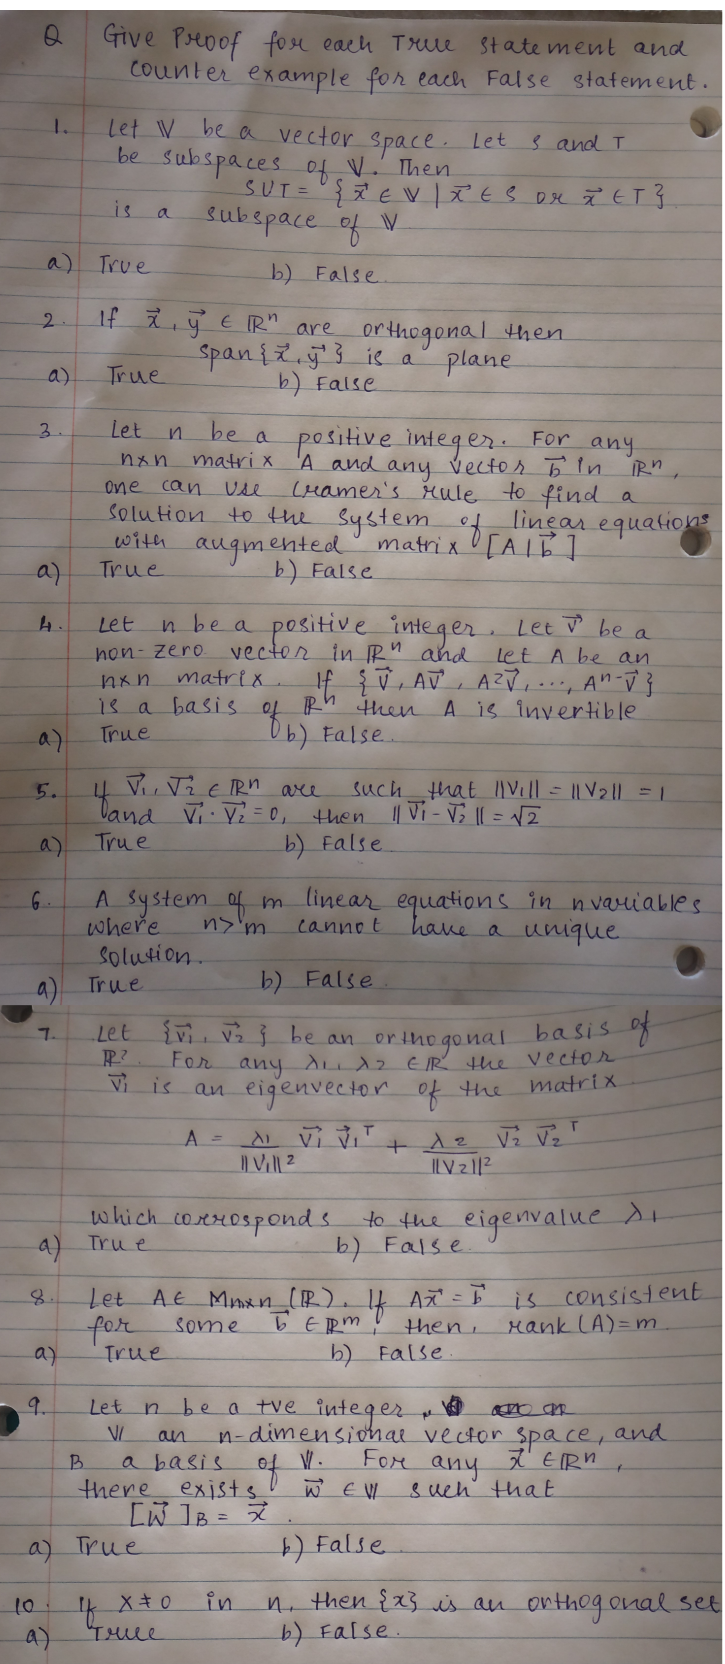 Q Give Proof for each True statement and
counter example for each False statement.
1. Let V be a vector space. Let S and T
be subspaces of V. Then
SUT = {x⃗ ∈ V | x⃗ ∈ S or x⃗ ∈ T}
is a subspace of V
a) True b) False
2. If x⃗, y⃗ ∈ ℝⁿ are orthogonal then
span{x⃗, y⃗} is a plane
a) True b) False
3. Let n be a positive integer. For any
n×n matrix A and any vector b⃗ in ℝⁿ,
one can use Cramer's rule to find a
solution to the system of linear equations
with augmented matrix [A | b⃗]
a) True b) False
4. Let n be a positive integer. Let v⃗ be a
non-zero vector in ℝⁿ and let A be an
n×n matrix. If {v⃗, Av⃗, A²v⃗, ..., Aⁿ⁻v⃗}
is a basis of ℝⁿ then A is invertible
a) True b) False.
5. If v⃗₁, v⃗₂ ∈ ℝⁿ are such that ||V₁|| = ||V₂|| = 1
and v⃗₁ · v⃗₂ = 0, then ||v⃗₁ - v⃗₂|| = √2
a) True b) False
6. A system of m linear equations in n variables
where n>m cannot have a unique
solution.
a) True b) False.
7. Let {v⃗₁, v⃗₂} be an orthogonal basis of
ℝ². For any λ₁, λ₂ ∈ ℝ the vector
v⃗₁ is an eigenvector of the matrix
A = λ₁/||V₁||² v⃗₁ v⃗₁ᵀ + λ₂/||V₂||² v⃗₂ v⃗₂ᵀ
which corrosponds to the eigenvalue λ₁
a) True b) False.
8. Let A ∈ Mm×n (ℝ). If Ax⃗ = b⃗ is consistent
for some b⃗ ∈ ℝᵐ, then, rank(A)=m.
a) True b) False.
9. Let n be a +ve integer,
W an n-dimensional vector space, and
B a basis of W. For any x⃗ ∈ ℝⁿ,
there exists w⃗ ∈ W such that
[w⃗]B = x⃗.
a) True b) False.
10. If x≠0 in n, then {x} is an orthogonal set
a) True b) False.